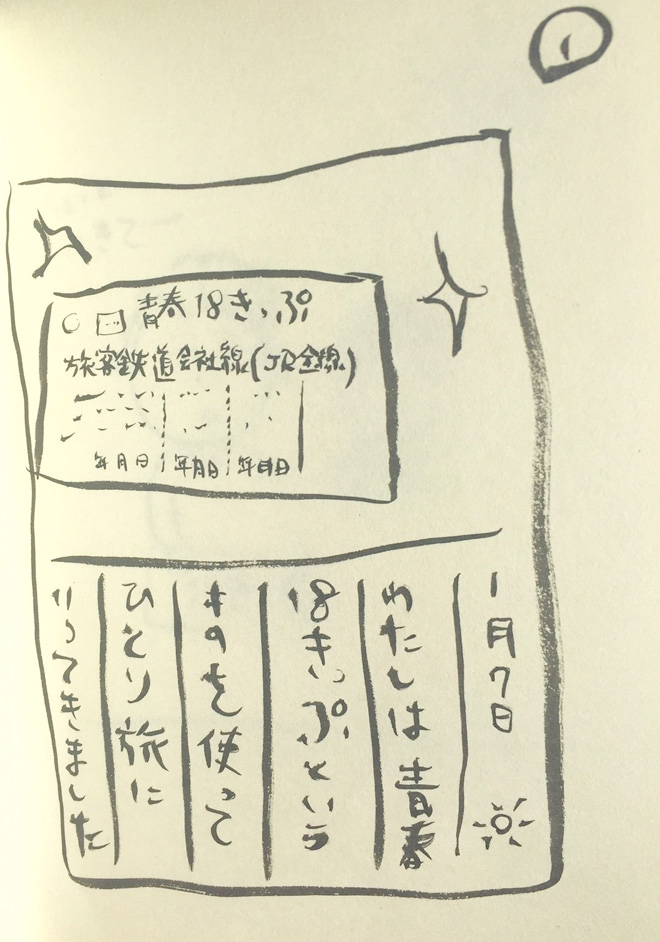 1
青春18きっぷ
旅客鉄道会社線(JR全線)
年月日
年月日
年月日
1月7日
わたしは青春
18きっぷという
ものを使って
ひとり旅に
いってきました